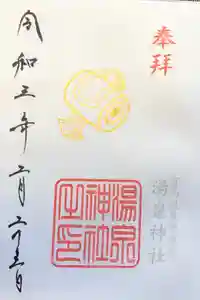 奉拝
湯泉神社
湯泉
神社
之印
令和五年二月二十三日